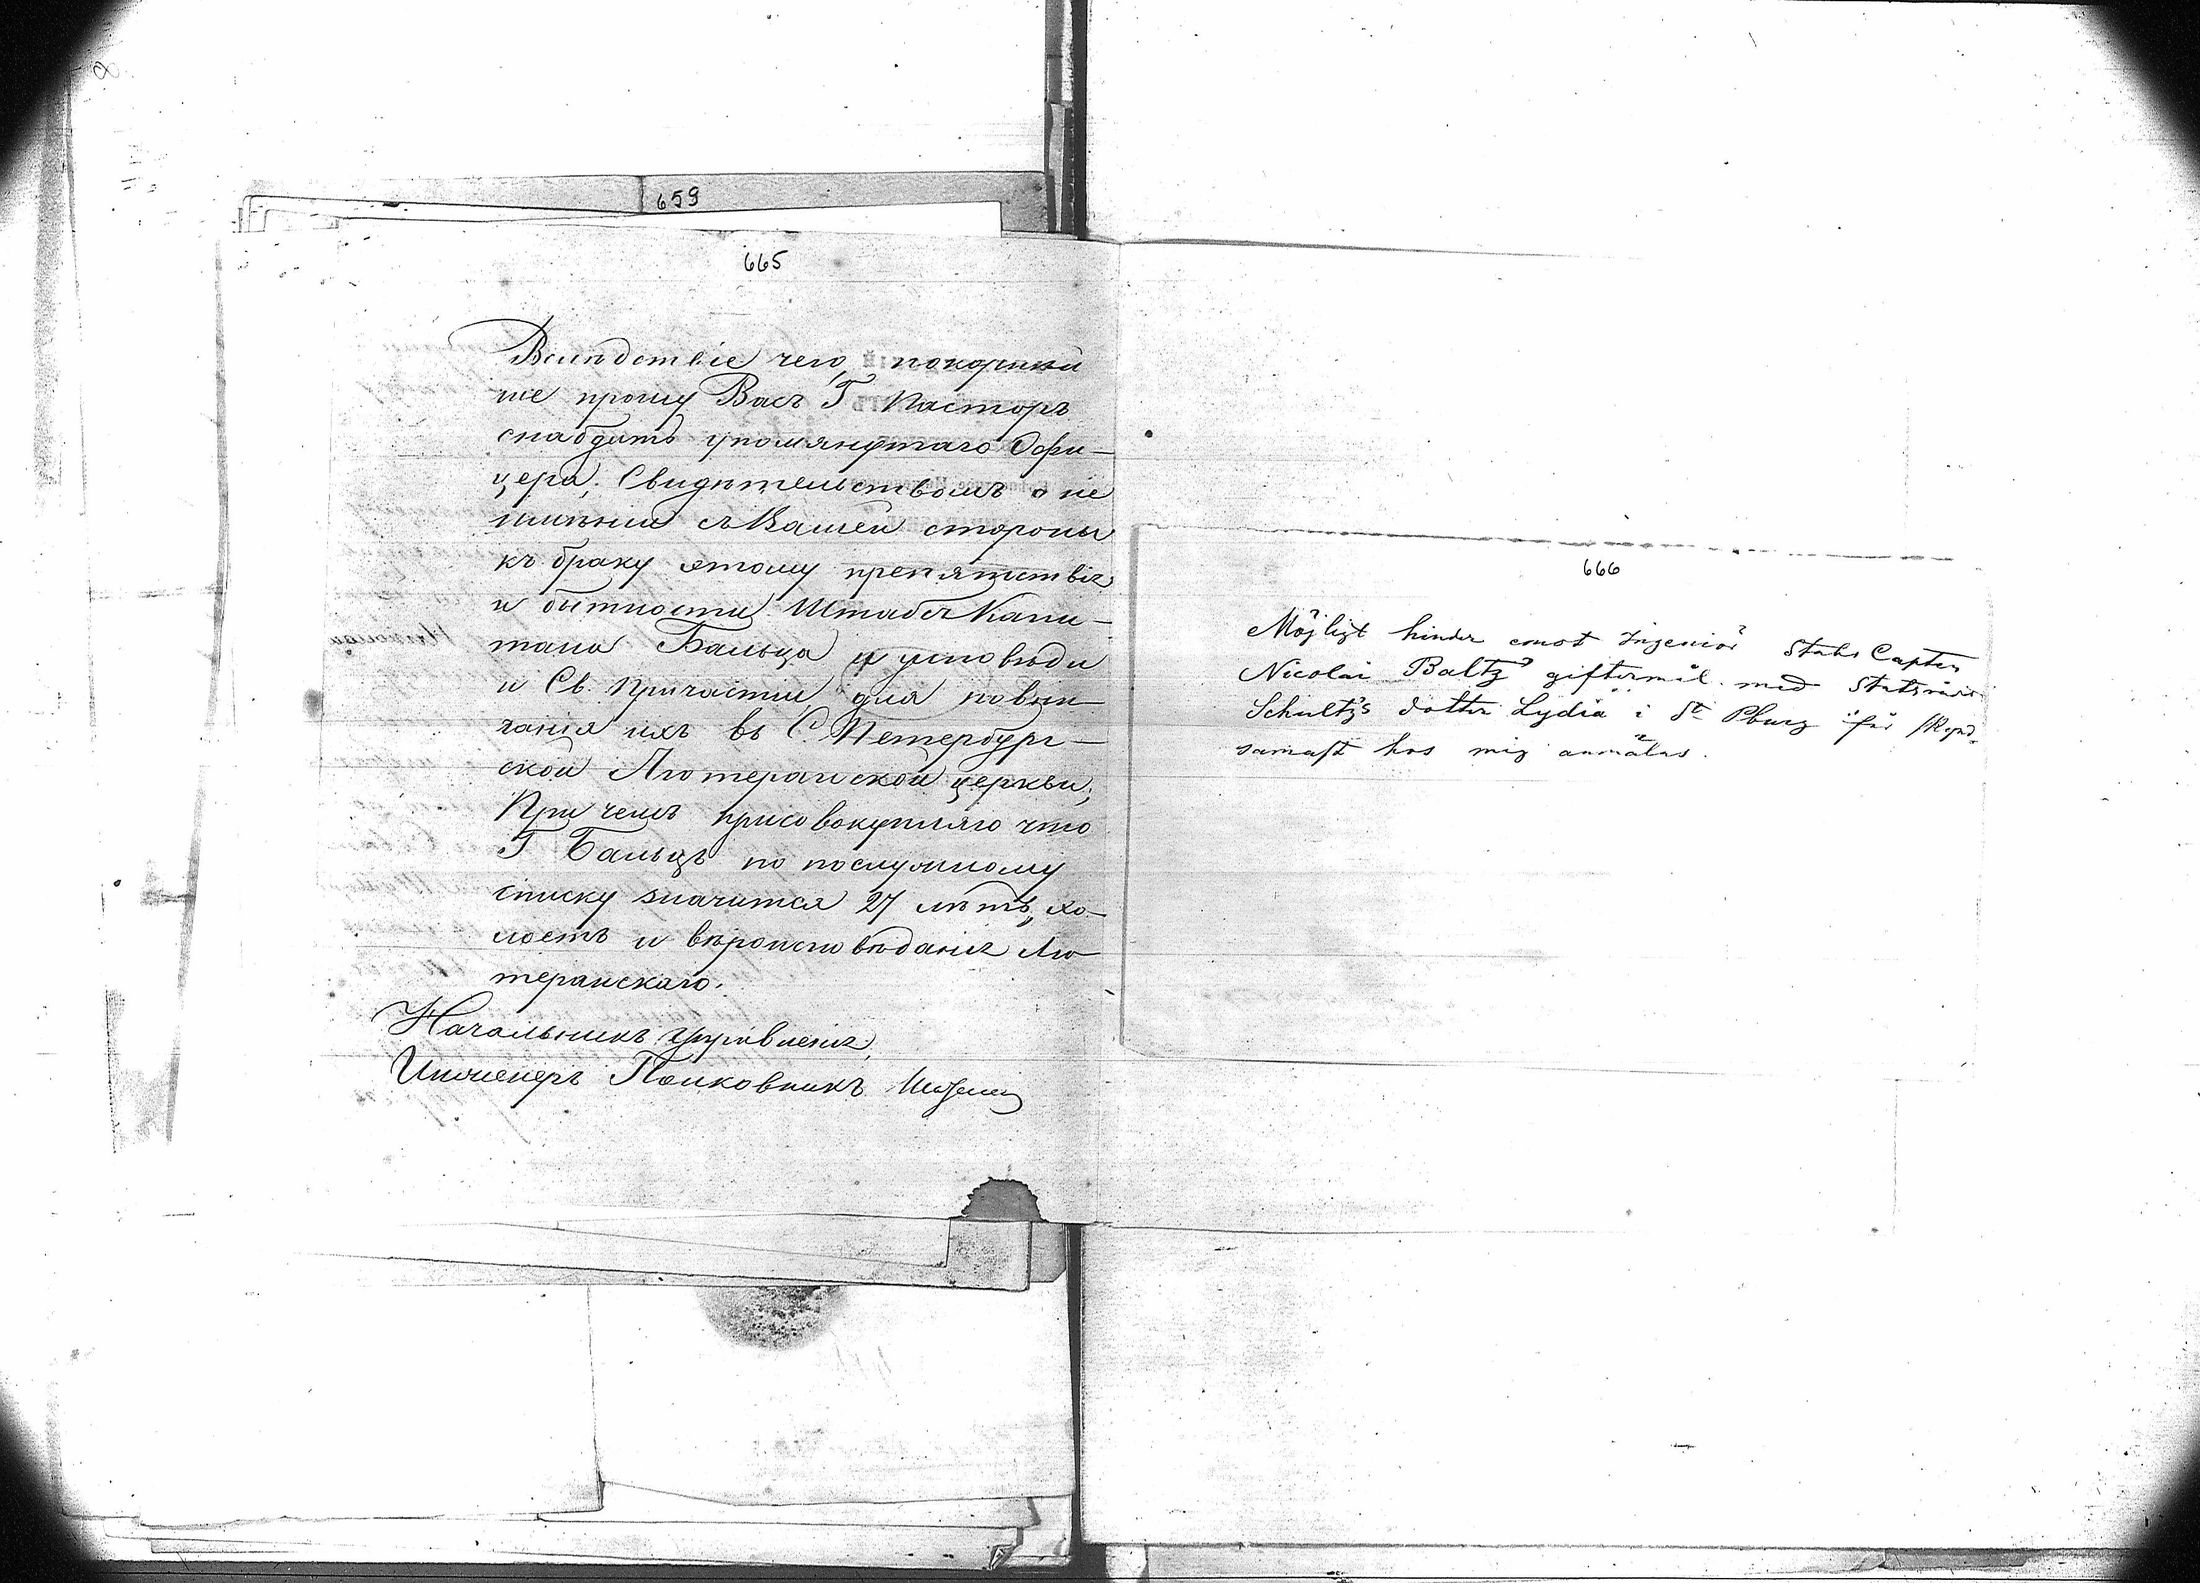 659
665
Вслѣдствіе чего, покорнѣй
ше прошу Васъ Г Пасторъ
снабдить упомянутаго Офи-
цера, Свидѣтельствомъ о не
имѣніи съ Вашей стороны
къ браку этому препятствія
и бытности Штабсъ Капи-
тана Бальца у исповѣди
и Св. Причастія, для повѣн-
чанія ихъ въ С. Петербург-
ской Лютеранской церкви;
При чемъ присовокупляю что
Г Бальцъ по послужному
списку значится 27 лѣтъ, хо-
лостъ и вѣроисповѣданія Лю-
теранскаго.
Начальникъ Управленія,
Инженеръ Полковникъ
666
Möjligt hinder emot Ingeniör Stabs Capten
Nicolai Baltz' giftermål med Statsrådet
Schultz's dotter Lydia i St Pburg för
samast hos mig anmälas.